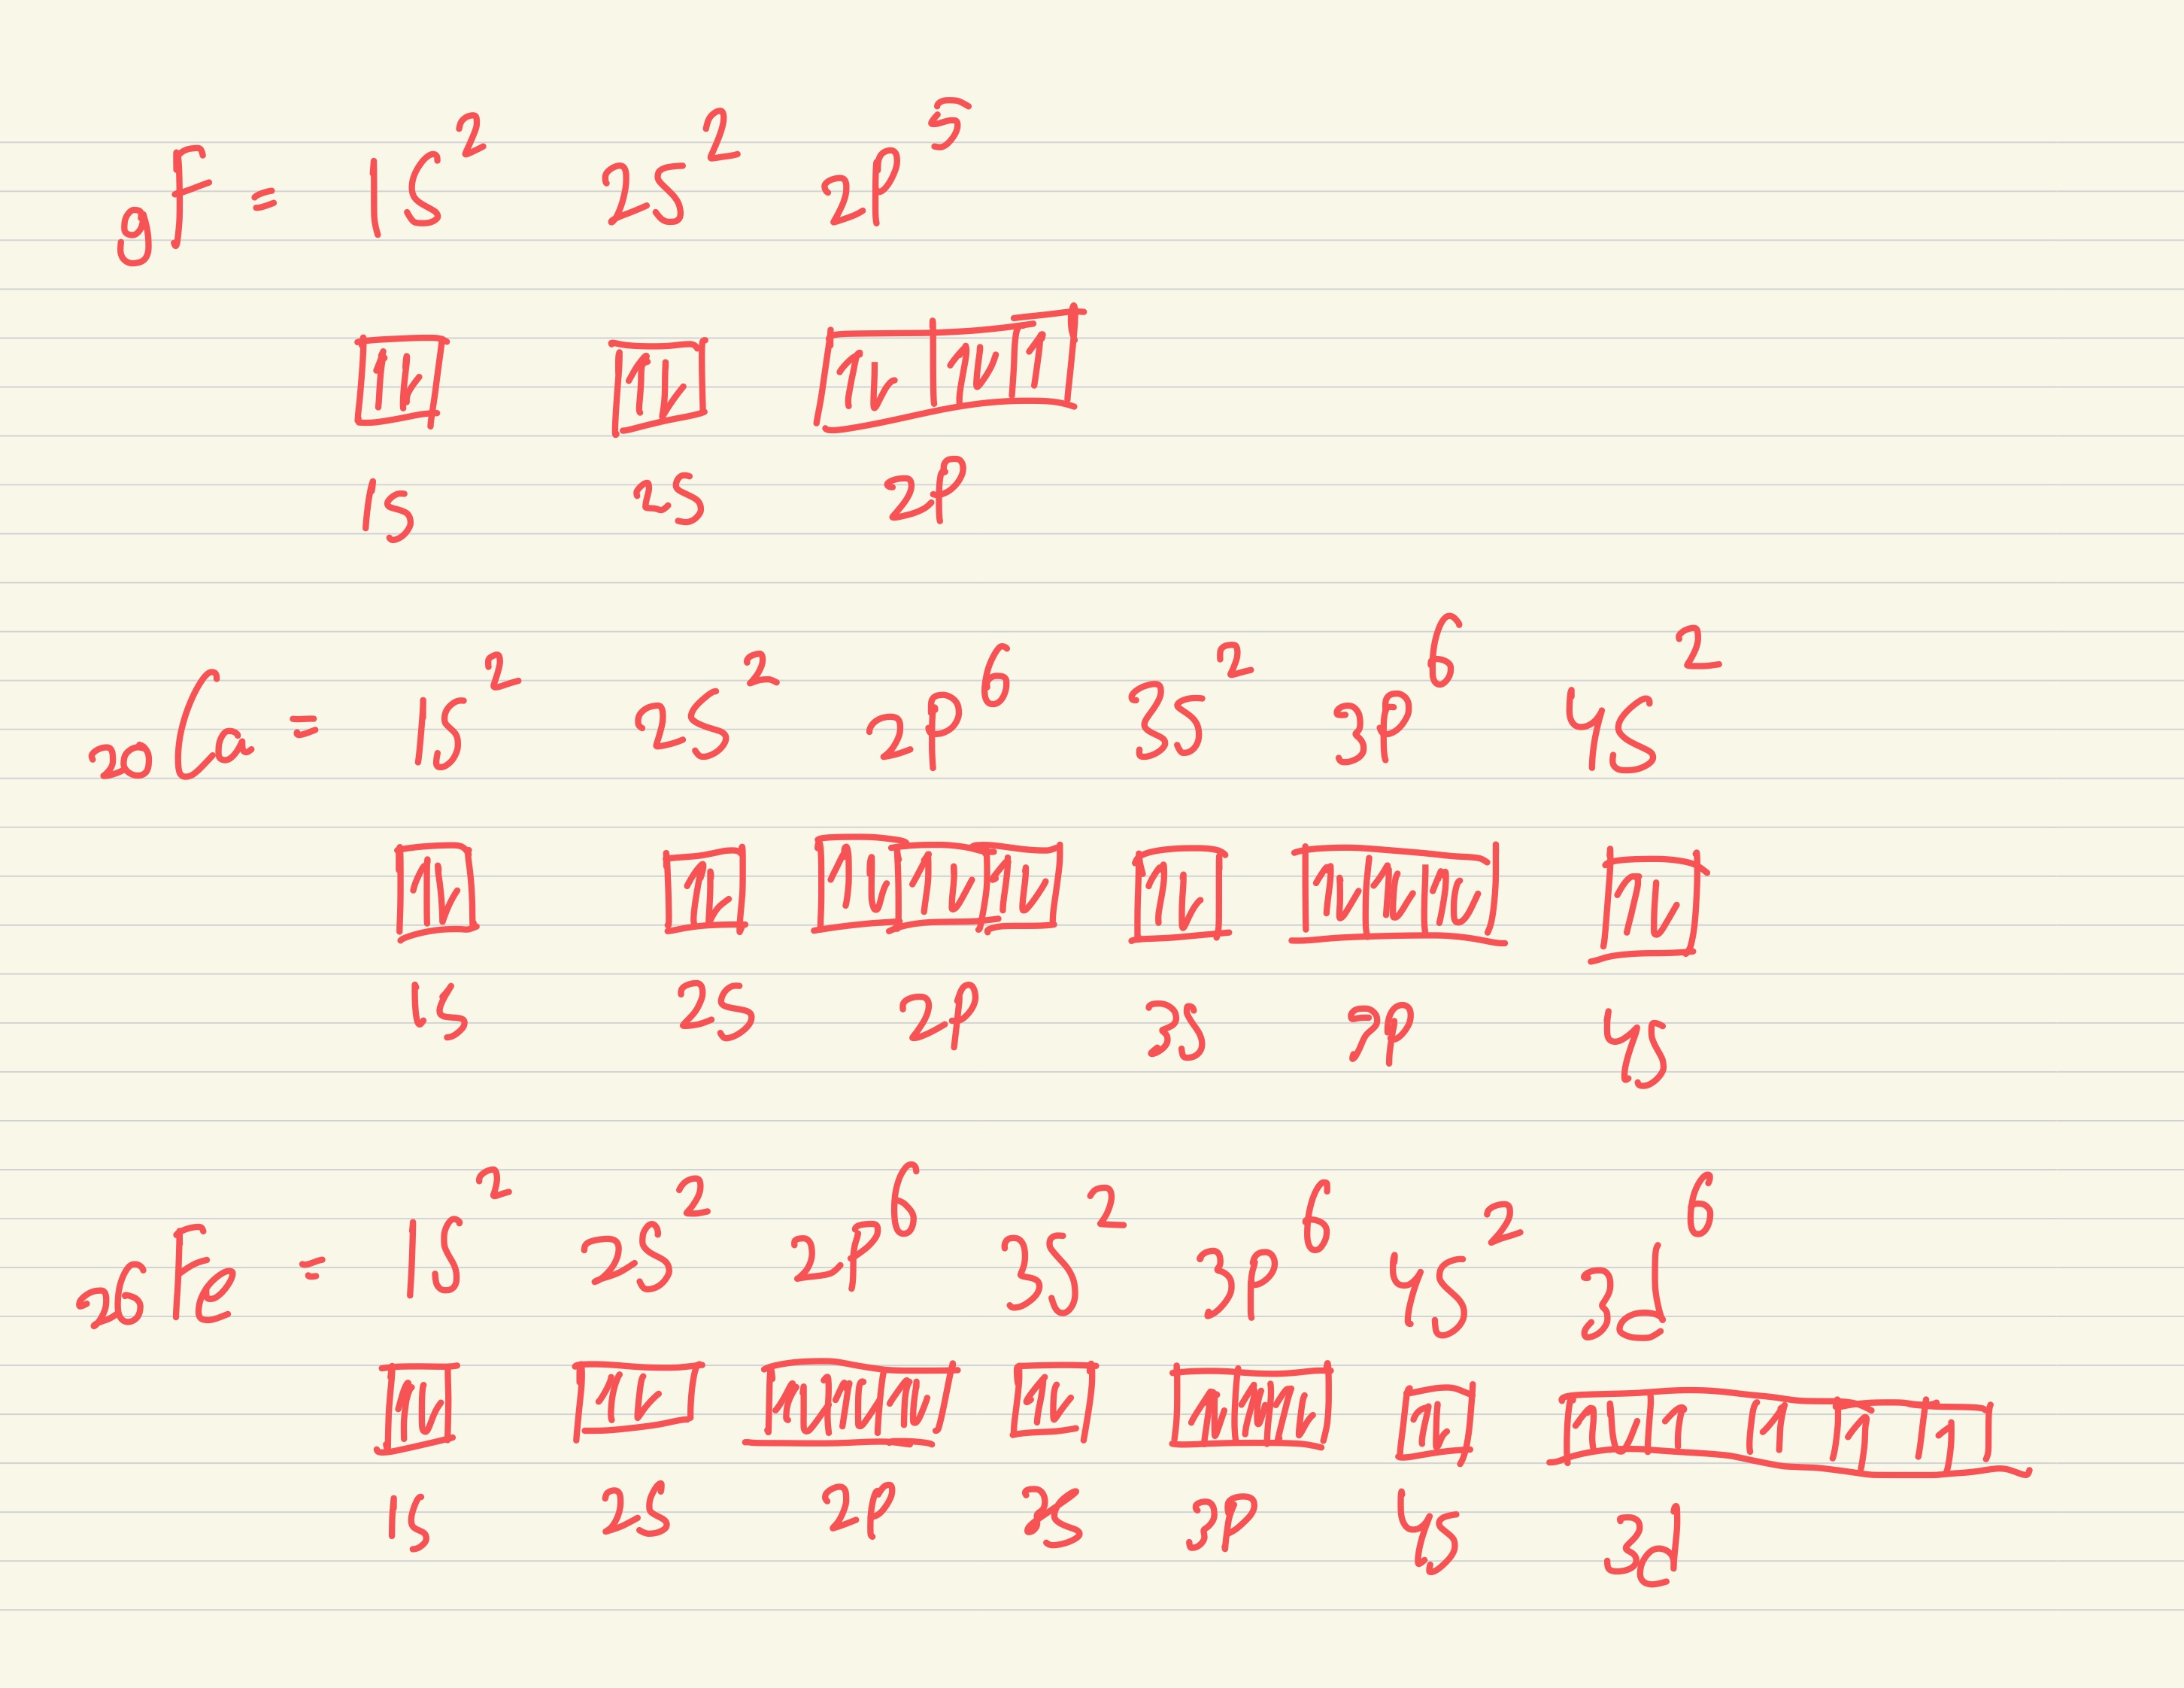 ₉F = 1s² 2s² 2p⁵
1s 2s 2p
₂₀Ca = 1s² 2s² 2p⁶ 3s² 3p⁶ 4s²
1s 2s 2p 3s 3p 4s
₂₆Fe = 1s² 2s² 2p⁶ 3s² 3p⁶ 4s² 3d⁶
1s 2s 2p 3s 3p 4s 3d